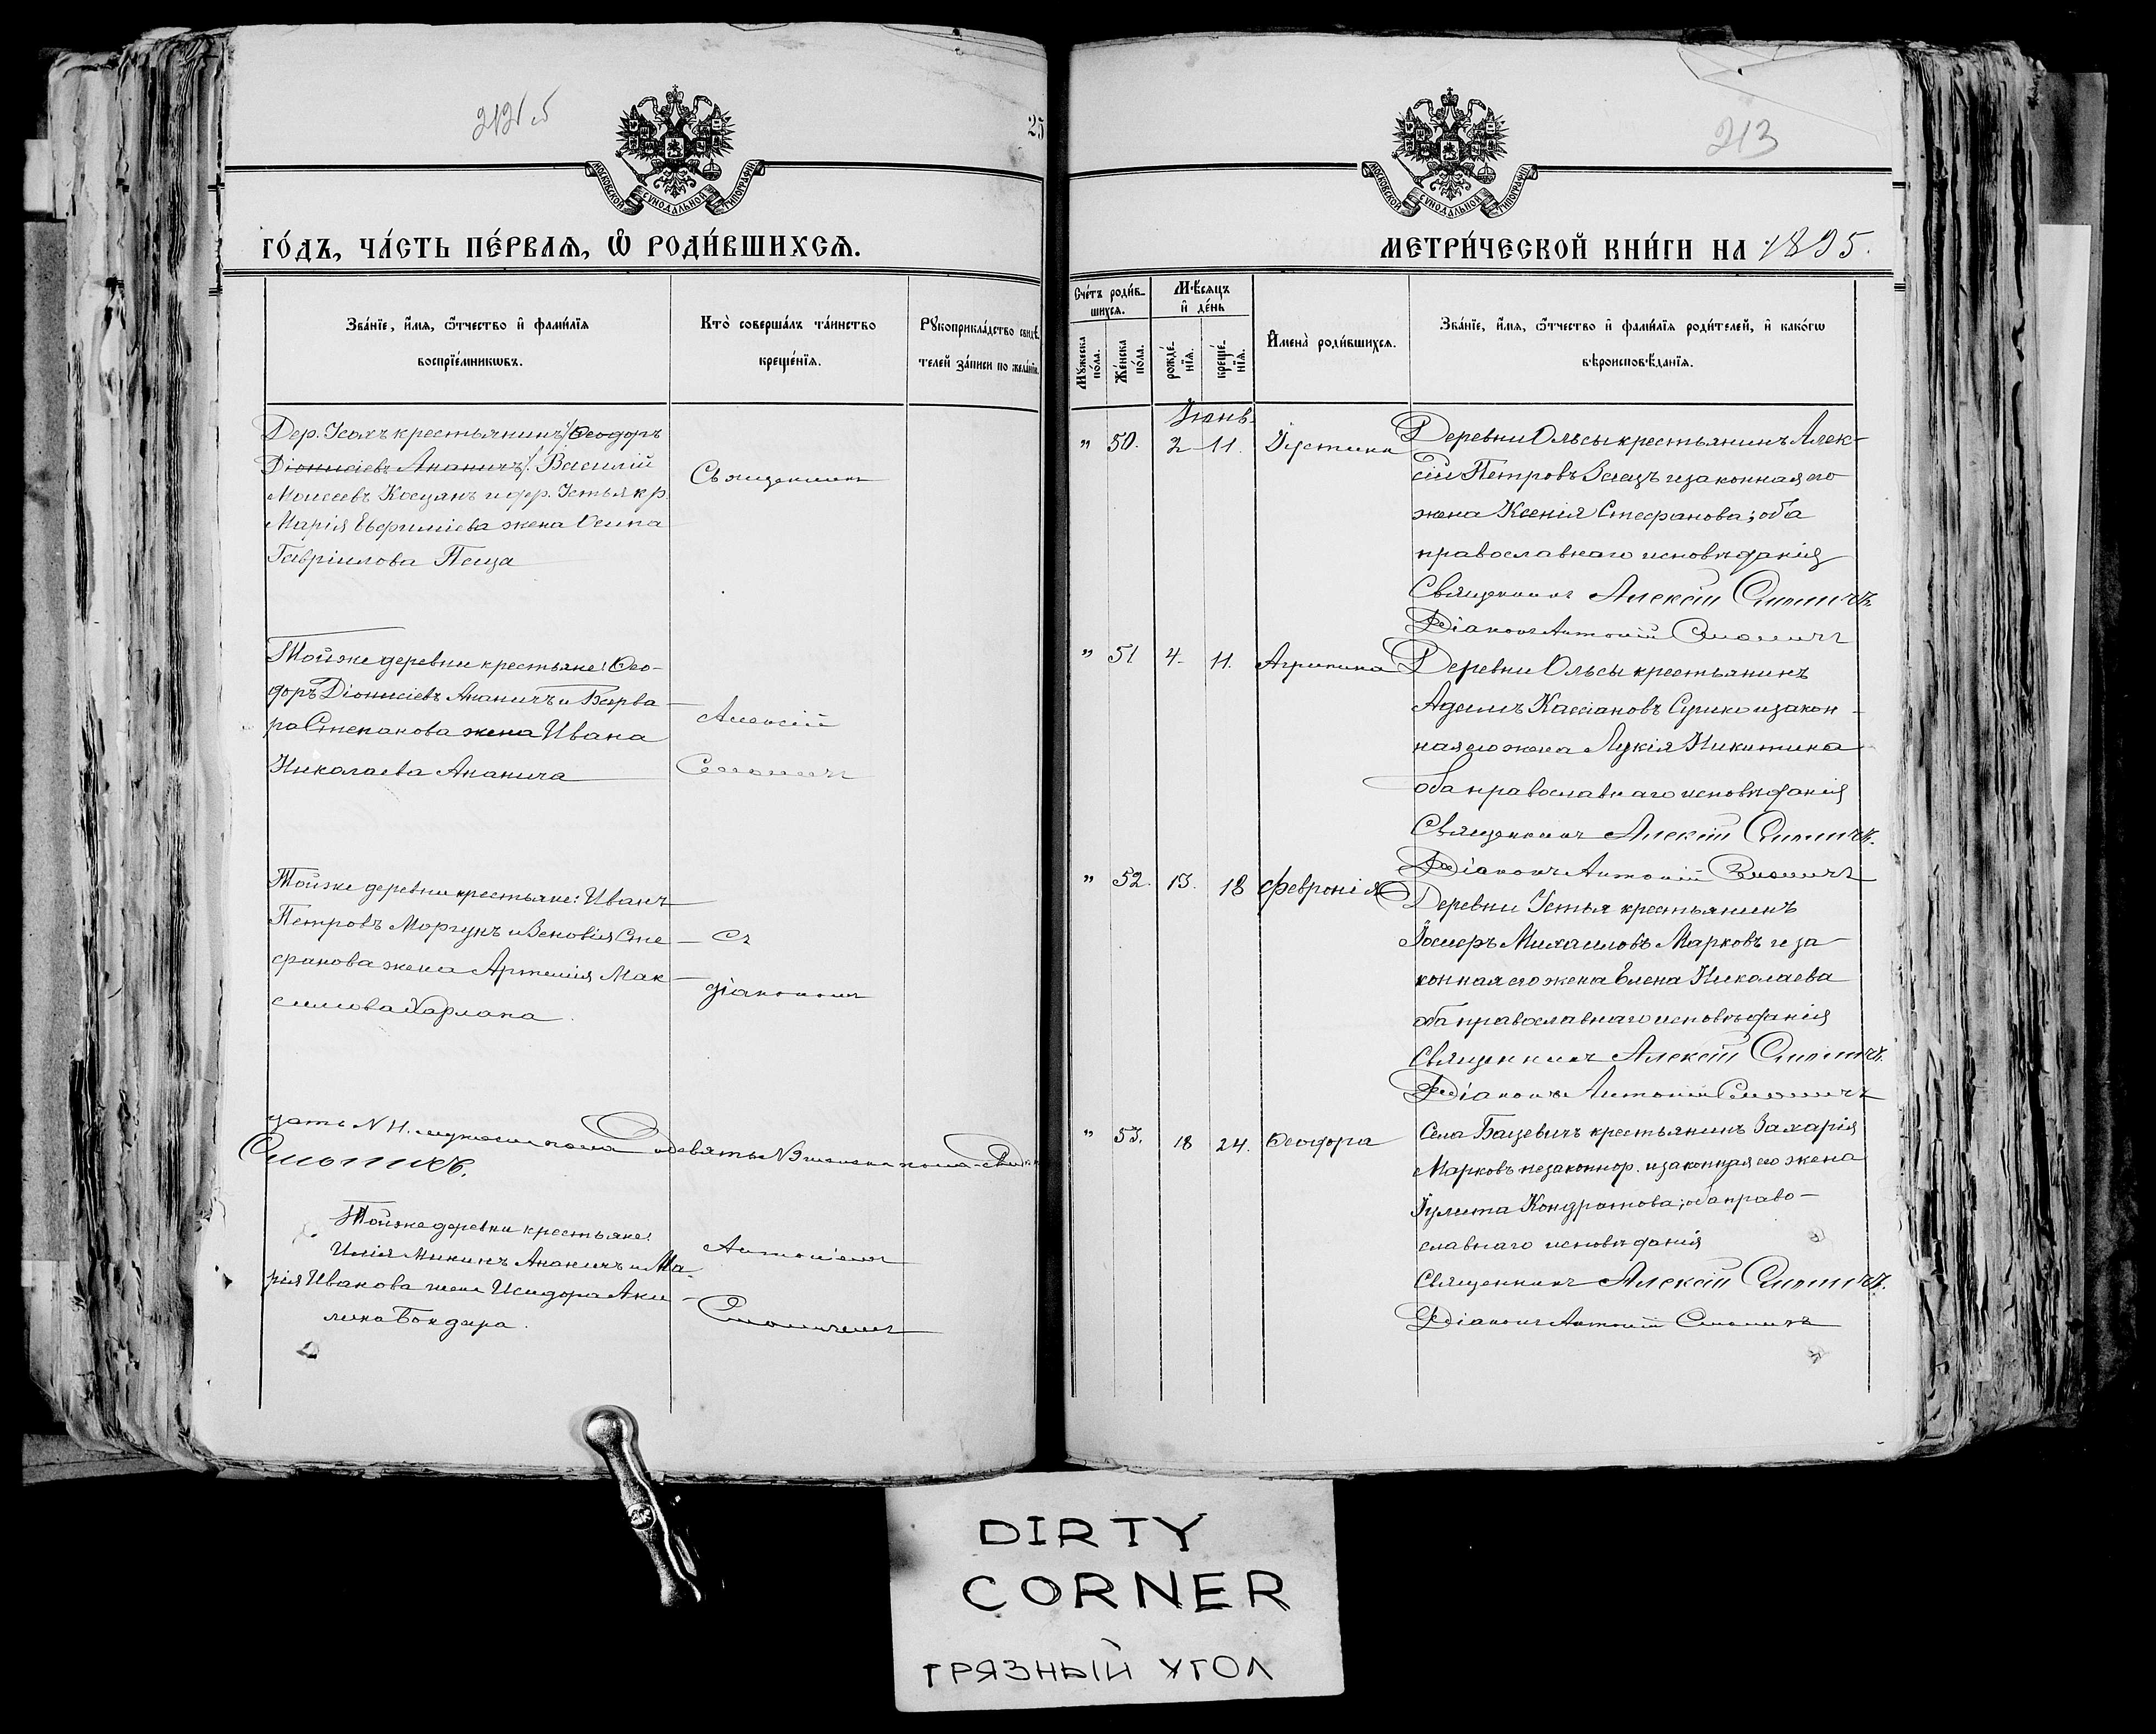 212 об
25
МОСКОВСКОЙ СѴНОДАЛЬНОЙ ТИПОГРАФІИ
ГО́ДЪ, ЧА́СТЬ ПЕ́РВАѦ, Ѡ҆ РОДИ́ВШИХСѦ.
Зва́нїе, и҆́мѧ, ѻ҆́тчество и҆ фами́лїѧ
воспрїе́мникѡвъ.
Кто̀ соверша́лъ та́инство
креще́нїѧ.
Рꙋкоприкла́дство свидѣ́
телей за́писи по жела́нїю.
Дер. Усохъ крестьянинъ /Ѳеодоръ
Діонисіевъ Ананичъ/. Василій
Моисеевъ Косцянъ и дер. Устья кр.
Марія Евфиміева жена Осипа
Гавріилова
Священникъ
Тойже деревни крестьяне: Ѳео-
доръ Діонисіевъ Ананичъ и Варва-
ра Степанова жена Ивана
Николаева Ананича
Алексій
Смоличъ
Тойже деревни крестьяне: Иванъ
Петровъ Моргунъ и Зеновія Сте-
фанова жена Артемія Мак-
симова Харлапа.
съ
діакономъ
Смоличъ.
Тойже деревни крестьяне:
Илія Микинъ Ананичъ и Ма-
рія Иванова жена Исидора Аки-
лина Бондара.
Антоніемъ
Смоличемъ
213
МОСКОВСКОЙ СѴНОДАЛЬНОЙ ТИПОГРАФІИ
МЕТРИ́ЧЕСКОЙ КНИ́ГИ НА 1895.
Сче́тъ роди́в-
шихсѧ.
Мꙋ́жеска по́ла.
Же́нска по́ла.
Мѣ́сѧцъ
и҆ де́нь
рожде́нїѧ.
креще́нїѧ.
И҆мена̀ роди́вшихсѧ.
Зва́нїе, и҆́мѧ, ѻ҆́тчество и҆ фами́лїѧ роди́телей, и҆ како́гѡ
вѣроисповѣ́данїѧ.
Іюнь.
" 50. 2 11. Іустина
Деревни Ольсы крестьянинъ Алек-
сій Петровъ Заяцъ и законная его
жена Ксенія Стефанова; оба
православнаго исповѣданія
Священникъ Алексій Смоличъ.
Діаконъ Антоній Смоличъ
" 51 4. 11. Агрипина
Деревни Ольсы крестьянинъ
Адамъ Кассіановъ и закон-
ная его жена Лукія Никитина
оба православнаго исповѣданія
Священникъ Алексій Смоличъ.
Діаконъ Антоній Смоличъ
" 52. 13. 18 Февронія
Деревни Устья крестьянинъ
Іосифъ Михаиловъ Марковъ и за-
конная его жена Елена Николаева
оба православнаго исповѣданія
Священникъ Алексій Смоличъ.
Діаконъ Антоній Смоличъ
" 53. 18 24. Ѳеодора
Села Бацевичъ крестьянинъ Захарія
Марковъ незаконнор. и законная его жена
Іулита Кондратова; оба право-
славнаго исповѣданія
Священникъ Алексій Смоличъ.
Діаконъ Антоній Смоличъ
DIRTY
CORNER
ГРЯЗНЫЙ УГОЛ